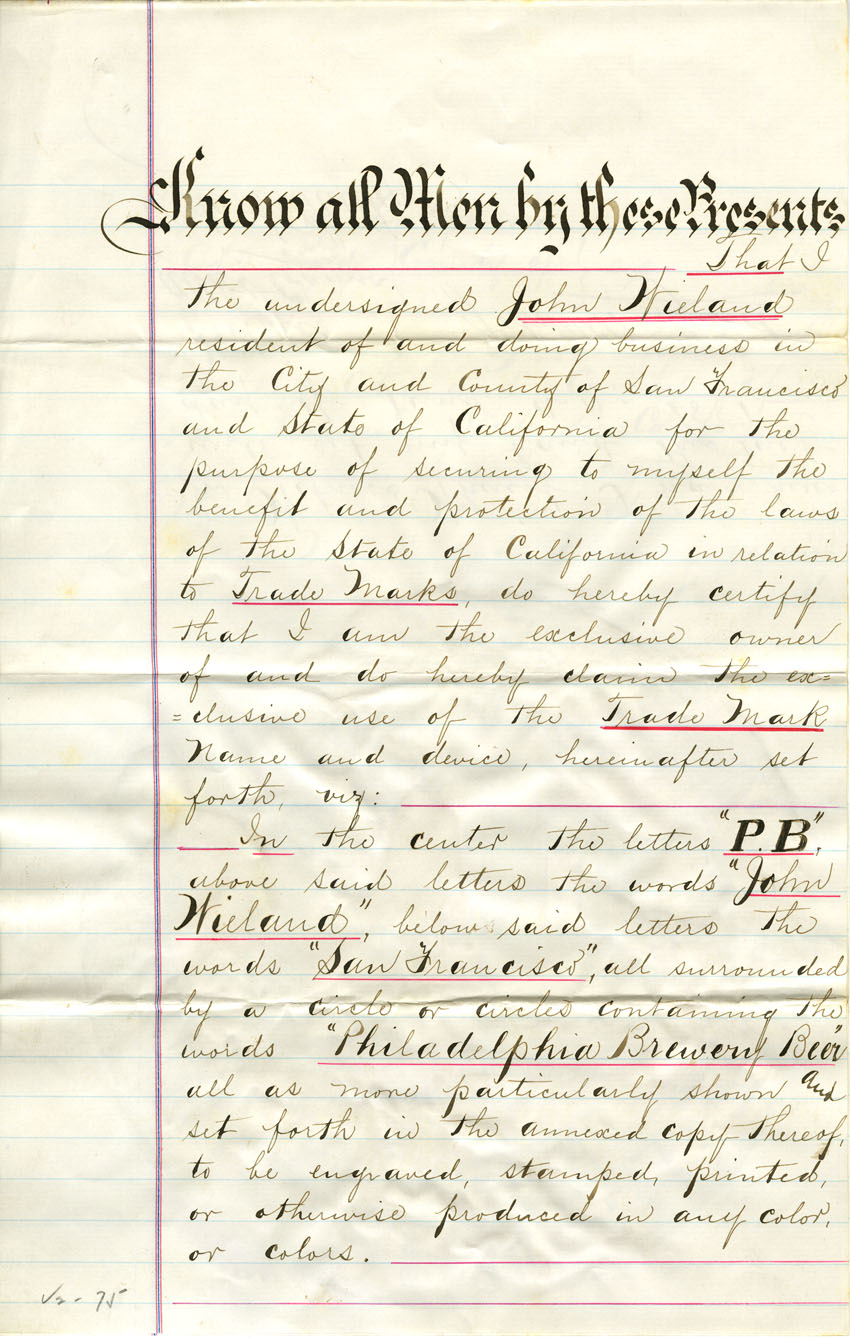 Know all Men by these Presents
That I
the undersigned John Wieland
resident of and doing business in
the City and County of San Francisco
and State of California for the
purpose of securing to myself the
benefit and protection of the laws
of the State of California in relation
to Trade Marks, do hereby certify
that I am the exclusive owner
of and do hereby claim the ex=
=clusive use of the Trade Mark
Name and device, hereinafter set
forth, viz:
In the center the letters "P.B",
above said letters the words "John
Wieland", below said letters the
words "San Francisco", all surrounded
by a circle or circles containing the
words "Philadelphia Brewery Beer"
all as more particularly shown and
set forth in the annexed copy thereof,
to be engraved, stamped, printed,
or otherwise produced in any color,
or colors.